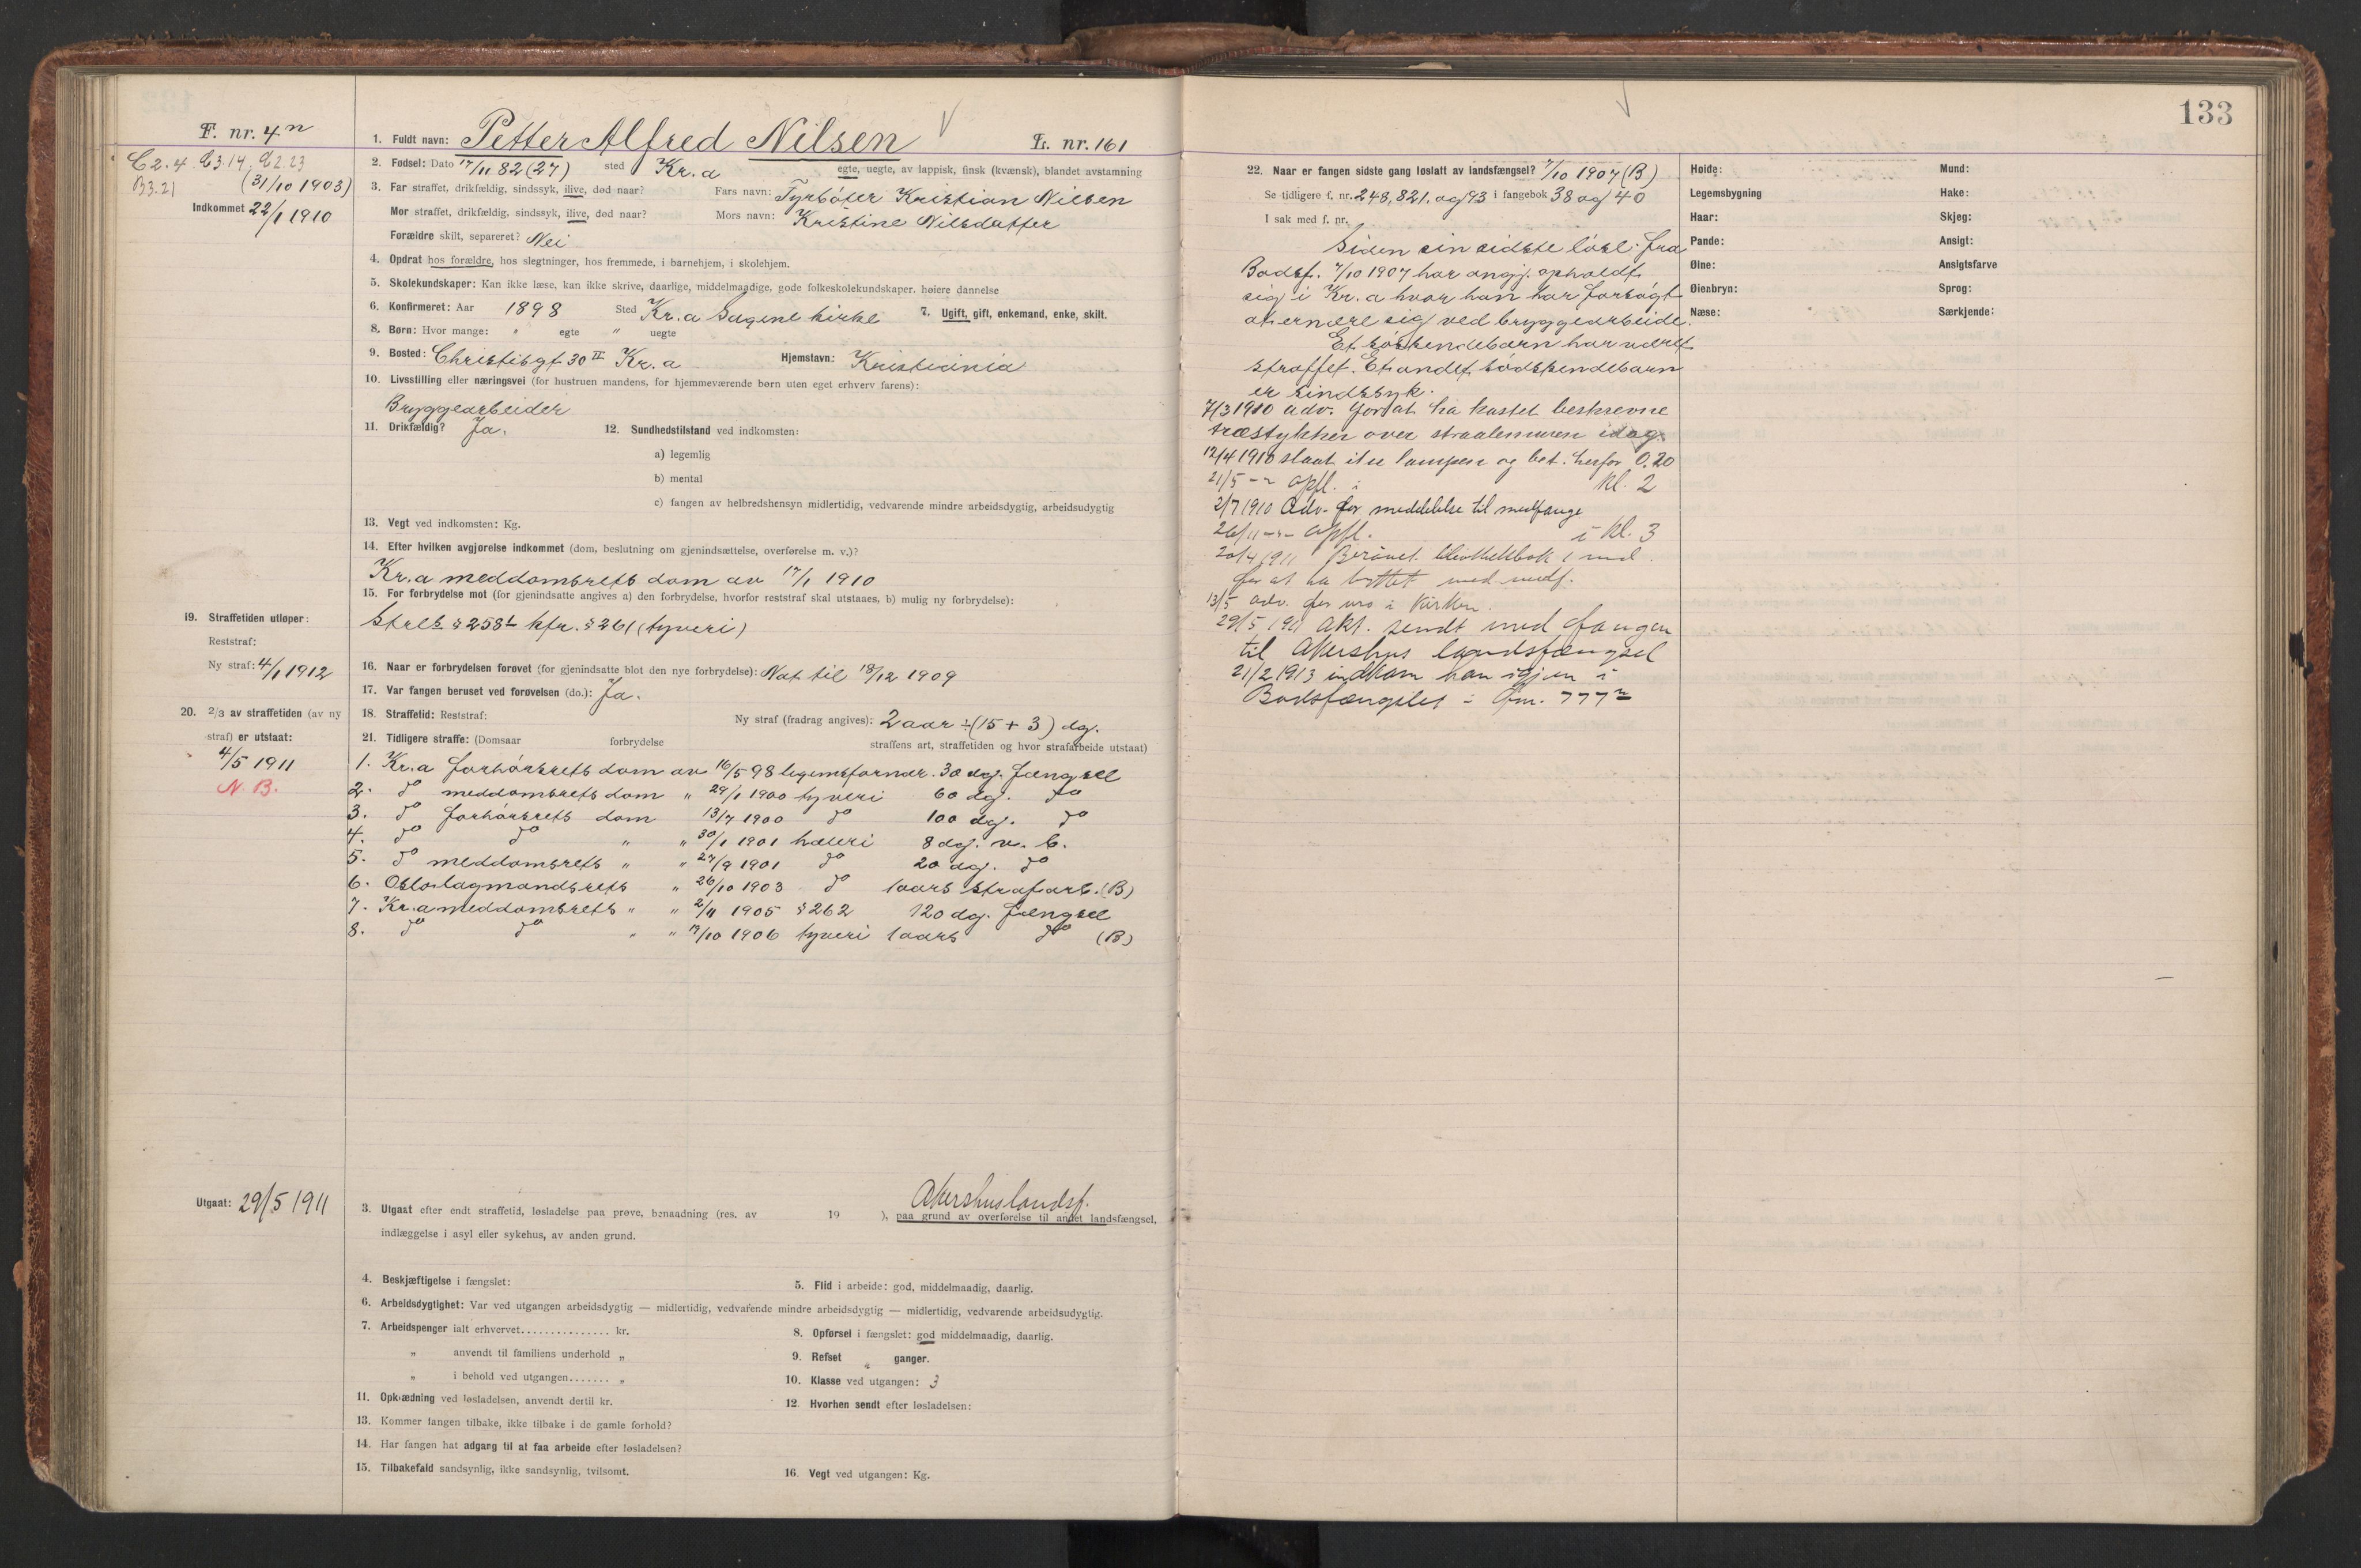 133
F. nr. 4n
C2.4. C3.14. C2.23
B3.21
(31/10 1903)
Indkommet 22/1 1910
1. Fuldt navn: Petter Alfred Nilsen L. nr. 161
2. Fødsel: Dato 17/11 82 (27) sted Kr.a egte, uegte, av lappisk, finsk (kvænsk), blandet avstamning
3. Far straffet, drikfældig, sindssyk, ilive, død naar? Fars navn: Fyrbøter Kristian Nilsen
Mor straffet, drikfældig, sindssyk, ilive, død naar? Mors navn: Kristine Nilsdatter
Forældre skilt, separeret? Nei
4. Opdrat hos forældre, hos slegtninger, hos fremmede, i barnehjem, i skolehjem.
5. Skolekundskaper: Kan ikke læse, kan ikke skrive, daarlige, middelmaadige, gode folkeskolekundskaper. høiere dannelse
6. Konfirmeret: Aar 1898 Sted Kr.a Sagene kirke 7. Ugift, gift, enkemand, enke, skilt.
8. Børn: Hvor mange: " egte " uegte
9. Bosted: Christiesgt 30 II Kr.a Hjemstavn: Kristiania
10. Livsstilling eller næringsvei (for hustruen mandens, for hjemmeværende børn uten eget erhverv farens):
Bryggearbeider
11. Drikfældig? Ja. 12. Sundhedstilstand ved indkomsten:
a) legemlig
b) mental
c) fangen av helbredshensyn midlertidig, vedvarende mindre arbeidsdygtig, arbeidsudygtig
13. Vegt ved indkomsten: Kg.
14. Efter hvilken avgjørelse indkommet (dom, beslutning om gjenindsættelse, overførelse m. v.)?
Kr.a meddomsrets dom av 17/1 1910
15. For forbrydelse mot (for gjenindsatte angives a) den forbrydelse, hvorfor reststraf skal utstaaes, b) mulig ny forbrydelse):
Strl. § 258 kfr. § 261 (tyveri)
19. Straffetiden utløper:
Reststraf:
Ny straf: 4/1 1912
16. Naar er forbrydelsen forøvet (for gjenindsatte blot den nye forbrydelse): Nat til 18/12 1909
17. Var fangen beruset ved forøvelsen (do.): Ja.
20. 2/3 av straffetiden (av ny
straf) er utstaat:
4/5 1911
N. B.
18. Straffetid: Reststraf: Ny straf (fradrag angives): 2 aar ÷ (15 + 3) dg.
21. Tidligere straffe: (Domsaar forbrydelse straffens art, straffetiden og hvor strafarbeide utstaat)
1. Kr.a forhørsrets dom av 16/5 98 legemsfornær. 30 dg. fængsel
2. do meddomsrets dom " 29/1 1900 tyveri 60 dg. do
3. do forhørsrets dom 13/7 1900 do 100 dg. do
4. do do " " 30/1 1901 hæleri 8 dg. v. b.
5. do meddomsrets " " 27/9 1901 do 20 dg. do
6. Oslo lagmandsrets " 26/10 1903 do 1 aars strafarb. (B)
7. Kr.a meddomsrets " " 2/11 1905 § 262 120 dg. fængsel
8. do do " " 17/10 1906 tyveri 1 aars do (B)
Utgaat: 29/5 1911
Akershus landsf.
3. Utgaat efter endt straffetid, løsladelse paa prøve, benaadning (res. av 19 ), paa grund av overførelse til andet landsfængsel,
indlæggelse i asyl eller sykehus, av anden grund.
4. Beskjæftigelse i fængslet: 5. Flid i arbeide: god, middelmaadig, daarlig.
6. Arbeidsdygtighet: Var ved utgangen arbeidsdygtig — midlertidig, vedvarende mindre arbeidsdygtig — midlertidig, vedvarende arbeidsudygtig.
7. Arbeidspenger ialt erhvervet............... kr. 8. Opførsel i fængslet: god middelmaadig, daarlig.
" anvendt til familiens underhold " 9. Refset " ganger.
" i behold ved utgangen....... " 10. Klasse ved utgangen: 3
11. Opklædning ved løsladelsen, anvendt dertil kr. 12. Hvorhen sendt efter løsladelsen:
13. Kommer fangen tilbake, ikke tilbake i de gamle forhold?
14. Har fangen hat adgang til at faa arbeide efter løsladelsen?
15. Tilbakefald sandsynlig, ikke sandsynlig, tvilsomt. 16. Vegt ved utgangen: Kg.
22. Naar er fangen sidste gang løslatt av landsfængsel? 7/10 1907 (B)
Se tidligere f. nr. 248, 821, og 93 i fangebok 38 og 40
I sak med f. nr.
Siden sin sidste løsl. fra
Bodsf. 7/10 1907 har angj. opholdt
sig i Kr.a hvor han har forsøgt
at ernære sig ved bryggearbeide.
Et søskendebarn har været
straffet. Et andet sødskendebarn
er sindssyk.
7/3 1910 adv. for at ha kastet beskrevne
træstykker over straalemuren idag.
12/4 1910 slaat itu lampen og bet. herfor 0.20
21/5 -"- opfl. i kl. 2
2/7 1910 Adv. for meddelelse til medfange
26/11 -"- opfl. i kl. 3
20/4 1911 Berøvet bibliothekbok 1 md.
for at ha byttet med medf.
13/5 adv. for uro i kirken.
29/5 1911 akt. sendt med fangen
til Akershus landsfængsel
21/2 1913 indkom han igjen i
Bodsfængslet i fnr. 777n
Høide:
Legemsbygning
Haar:
Pande:
Øine:
Øienbryn:
Næse:
Mund:
Hake:
Skjeg:
Ansigt:
Ansigtsfarve
Sprog:
Særkjende: